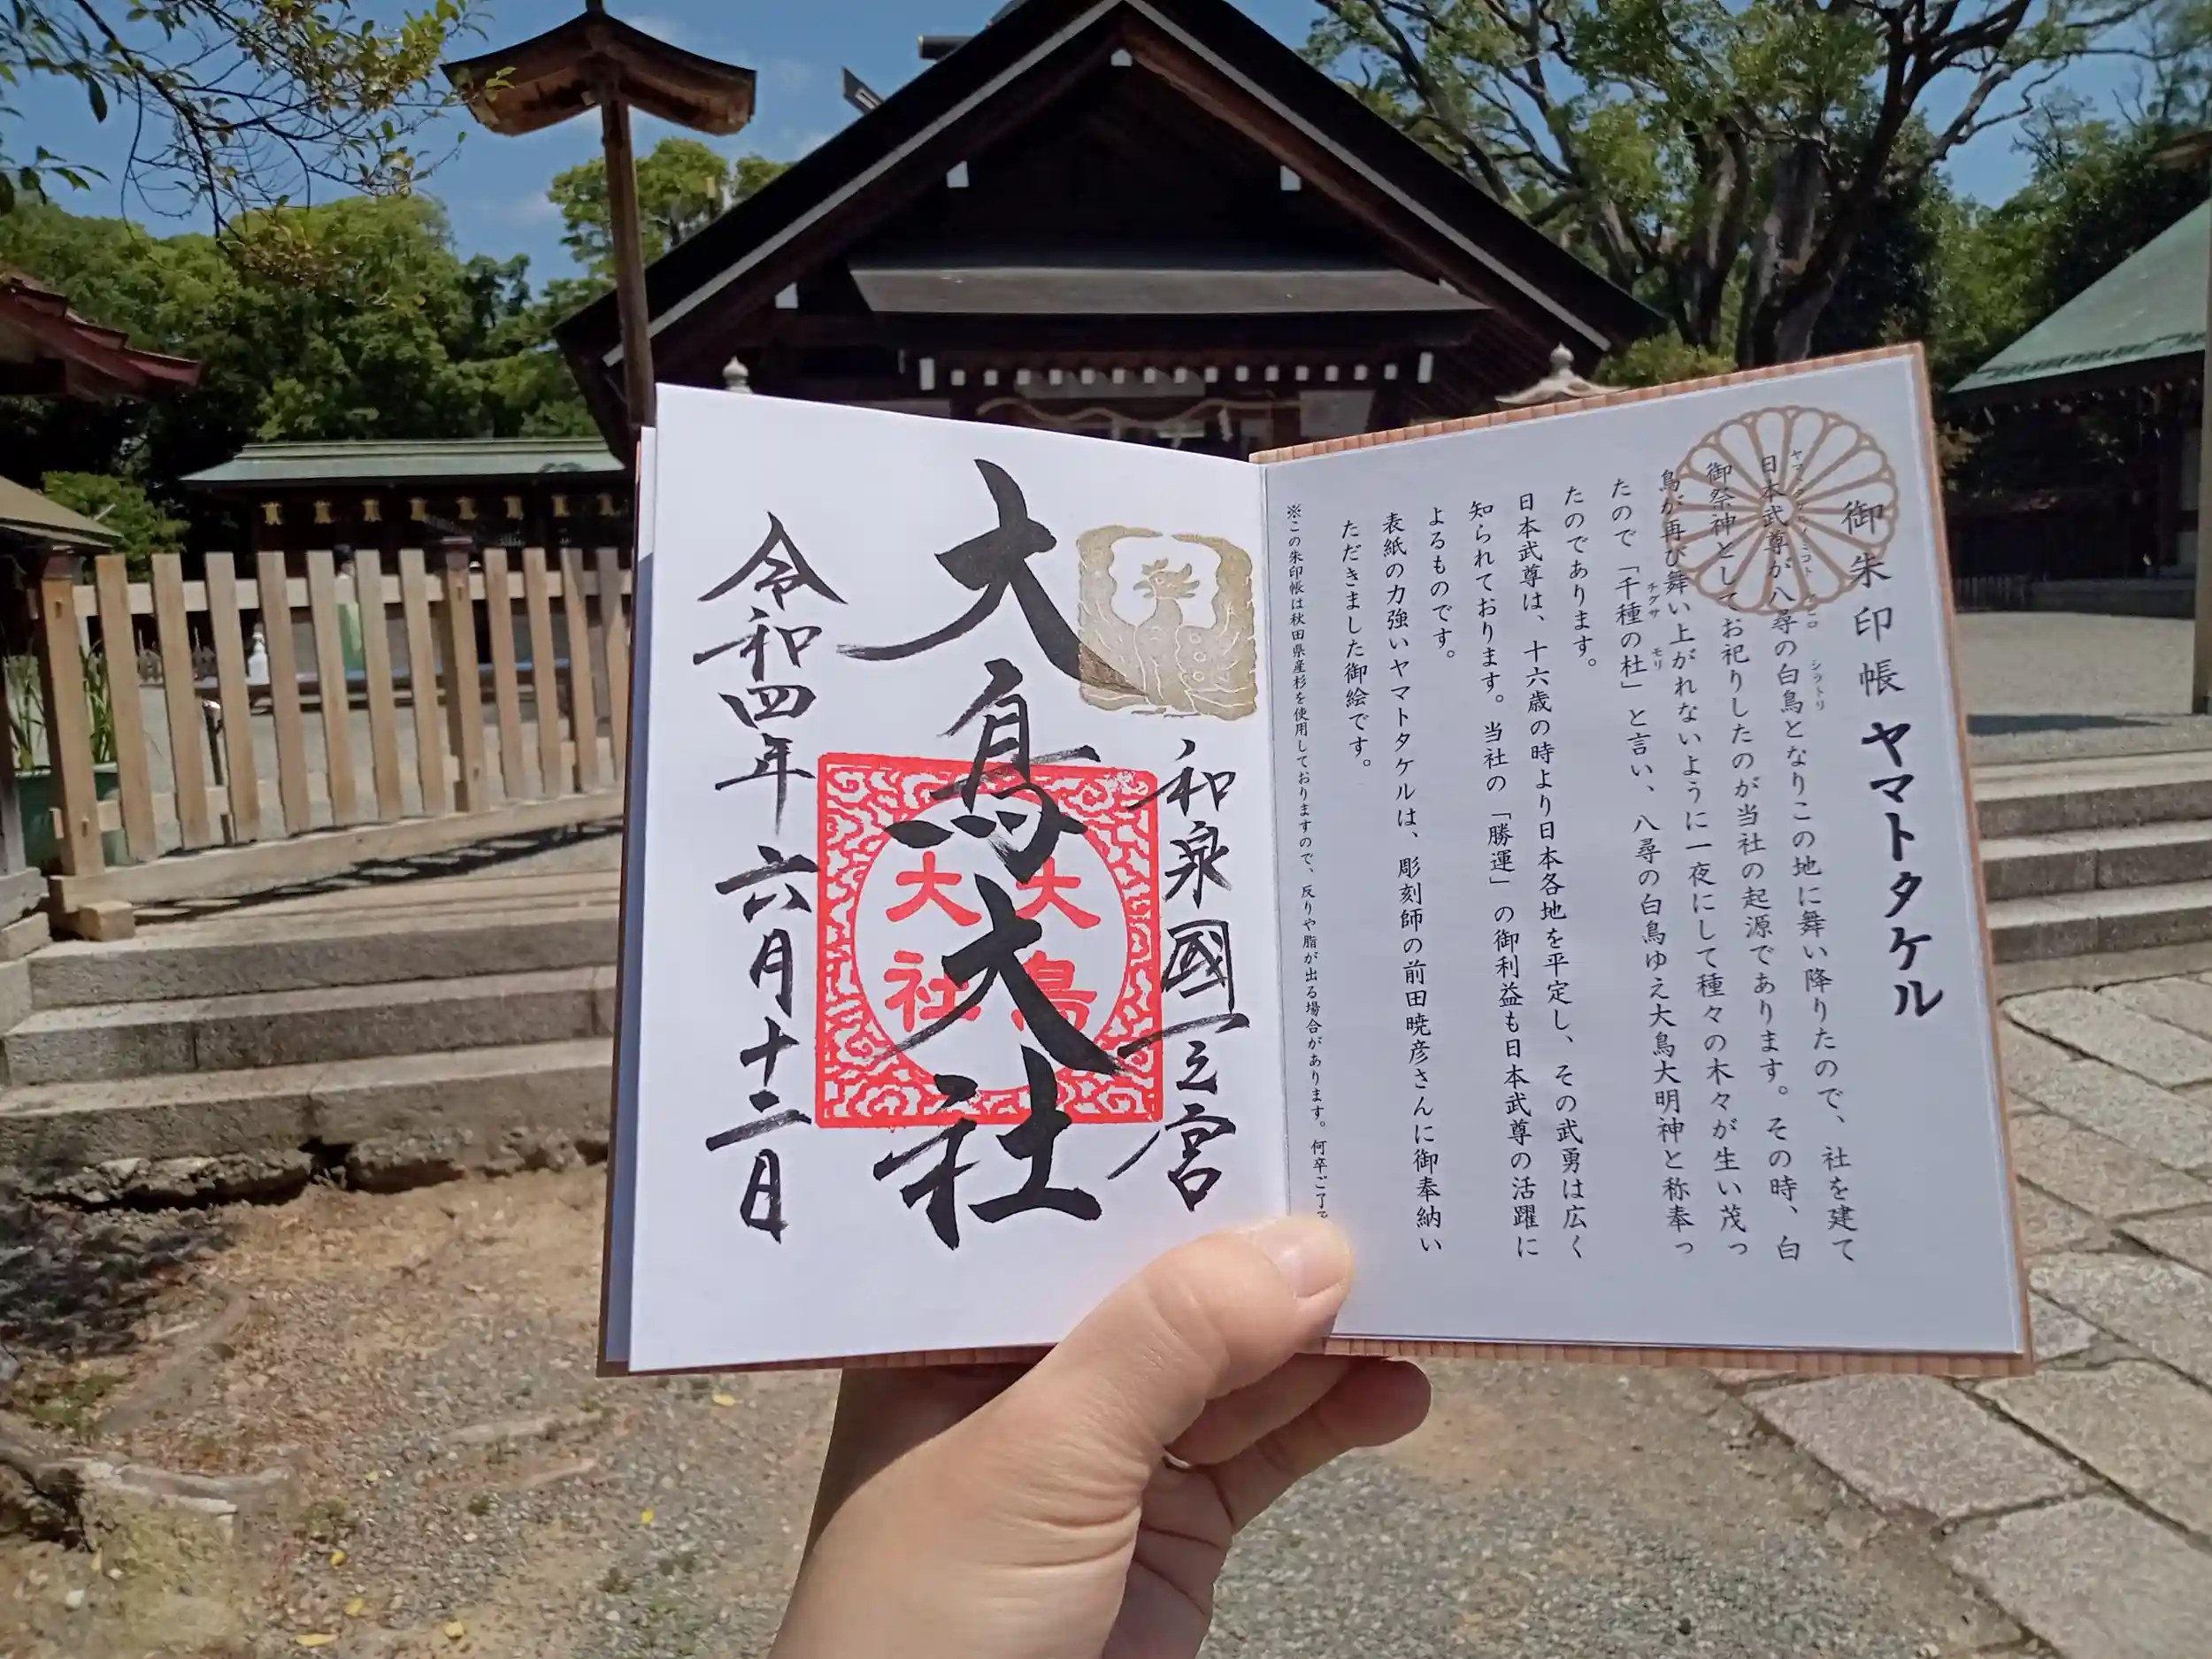 御朱印帳 ヤマトタケル
日本武尊が八尋の白鳥となりこの地に舞い降りたので、社を建て
ヤマトタケルノミコト
ヒロ
シラトリ
御祭神としてお祀りしたのが当社の起源であります。その時、白
鳥が再び舞い上がれないように一夜にして種々の木々が生い茂っ
たので「千種の杜」と言い、八尋の白鳥ゆえ大鳥大明神と称奉っ
チグサ
モリ
たのであります。
日本武尊は、十六歳の時より日本各地を平定し、その武勇は広く
知られております。当社の「勝運」の御利益も日本武尊の活躍に
よるものです。
表紙の力強いヤマトタケルは、彫刻師の前田暁彦さんに御奉納い
ただきました御絵です。
※この朱印帳は秋田県産杉を使用しておりますので、反りや脂が出る場合があります。何卒ご了
和泉國一之宮
大鳥大社
大鳥
大社
令和四年六月十二日